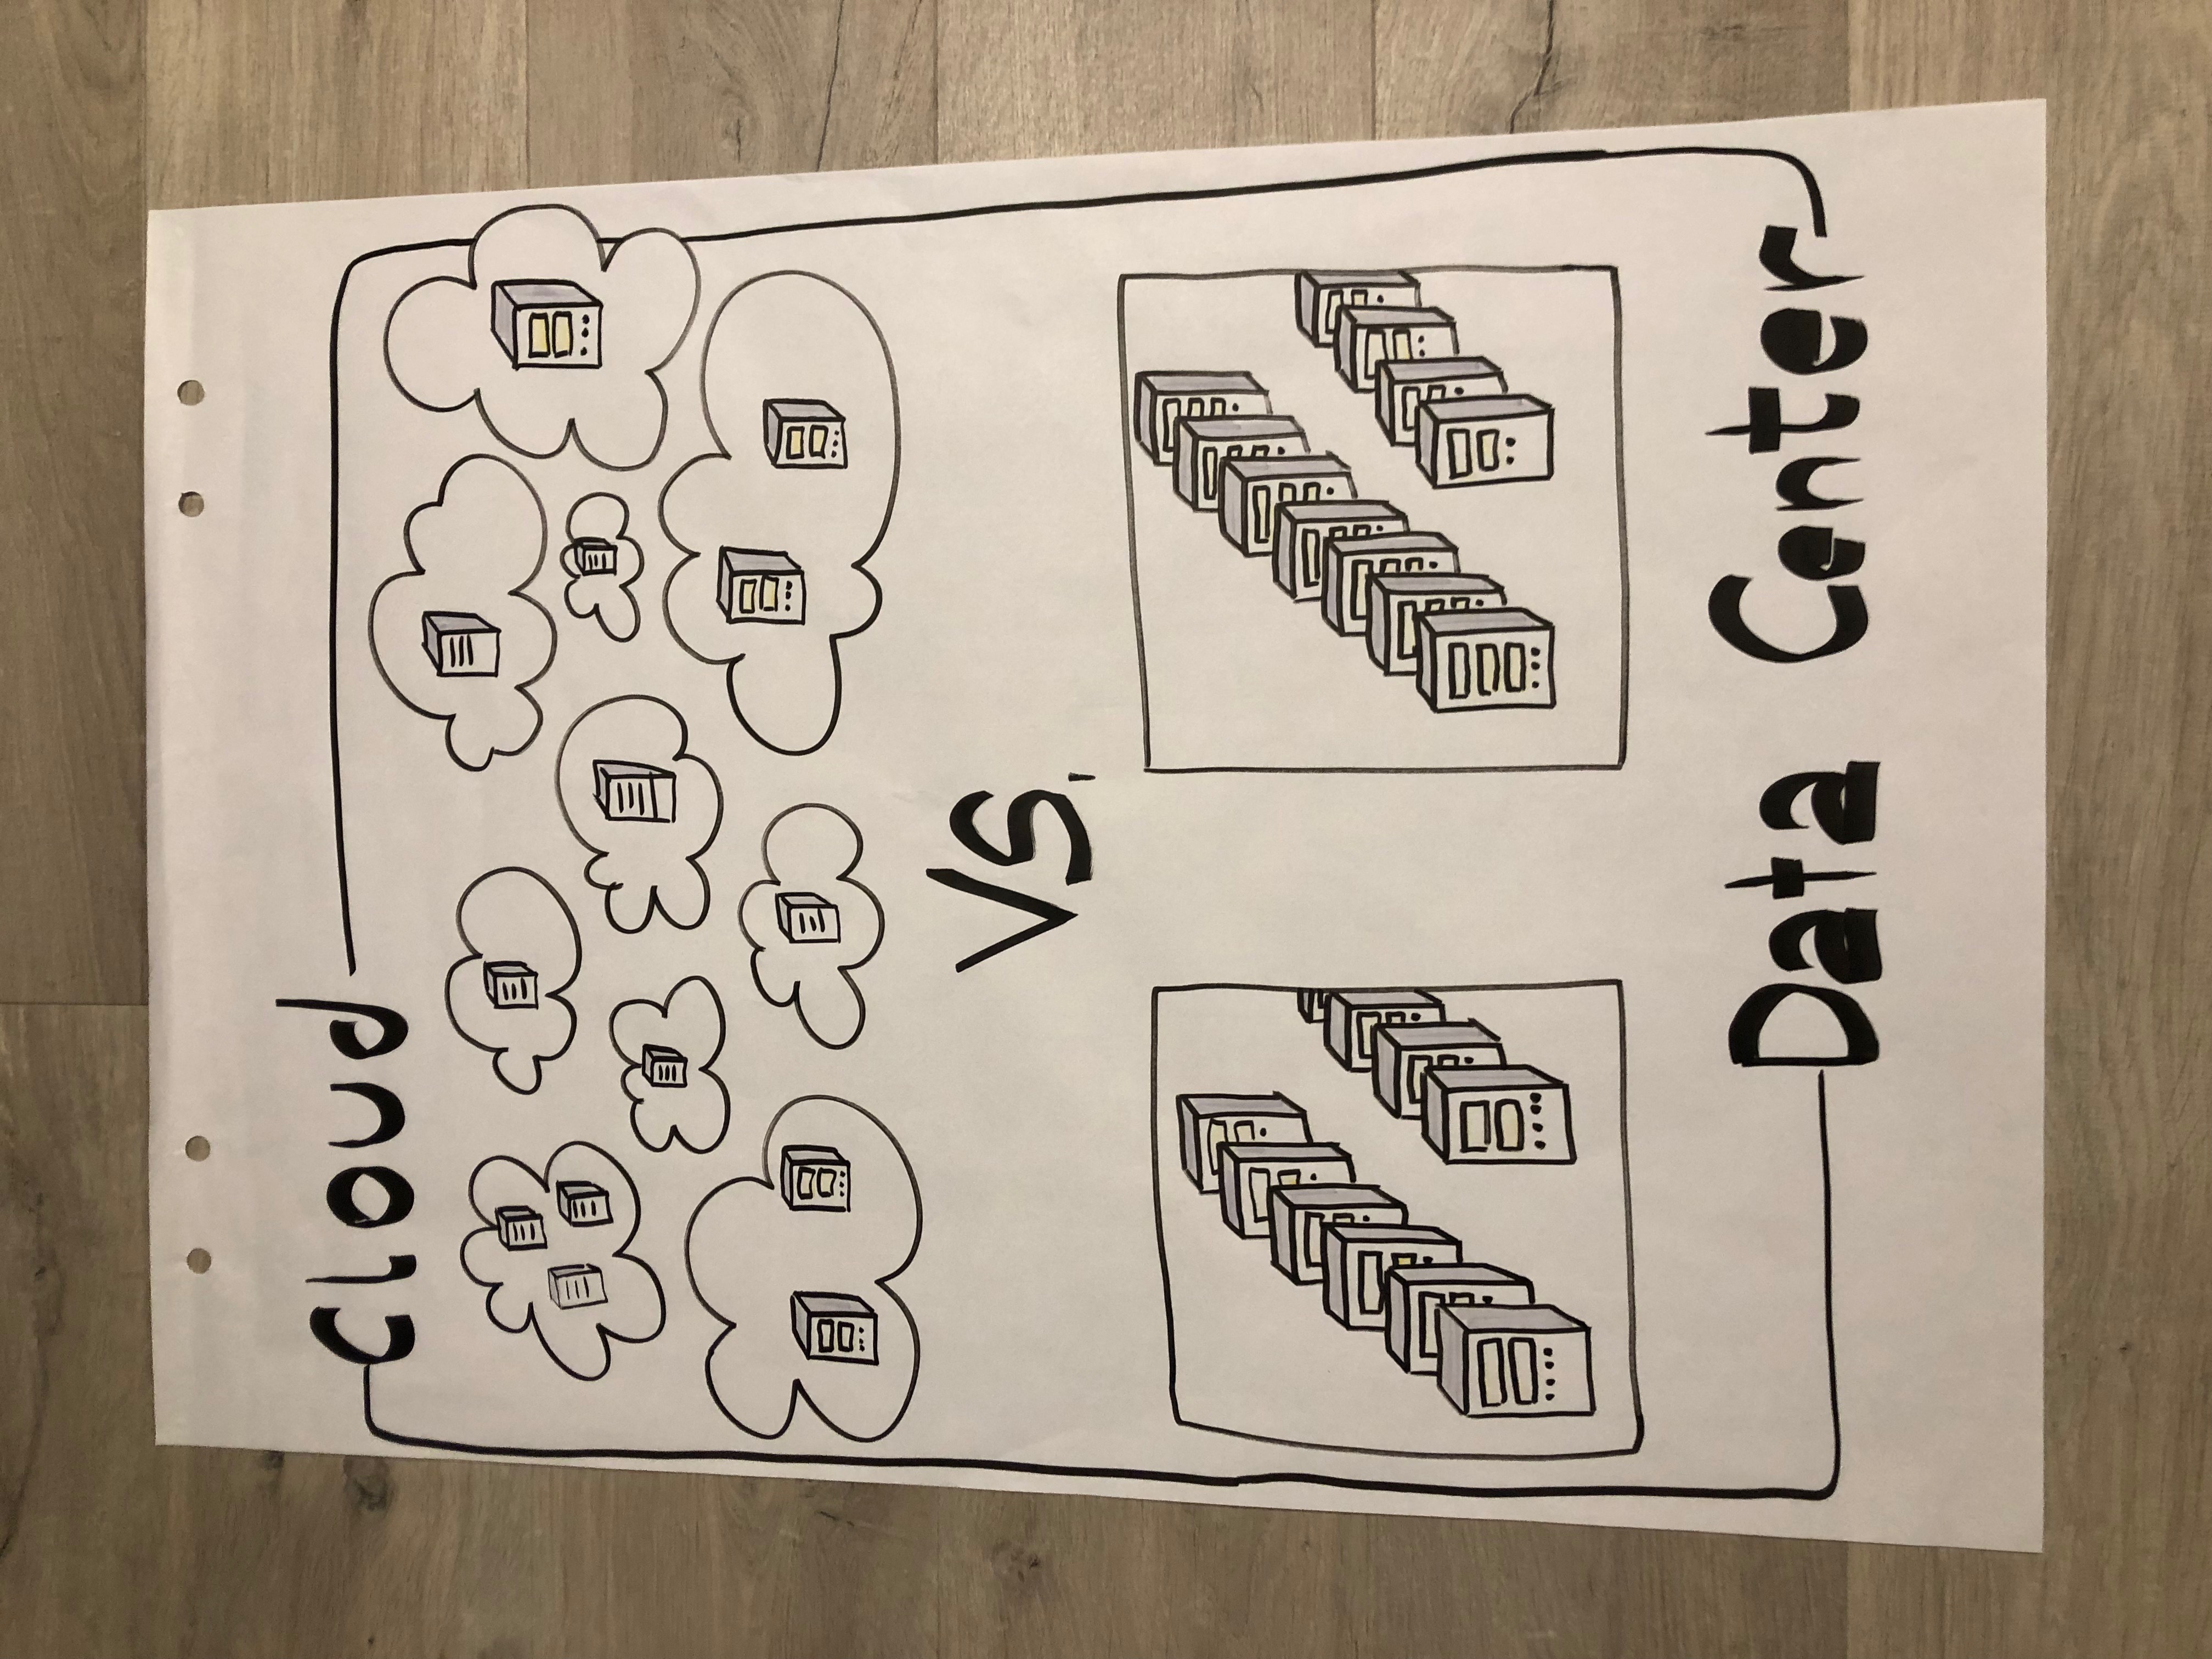 Cloud
VS.
Data Center